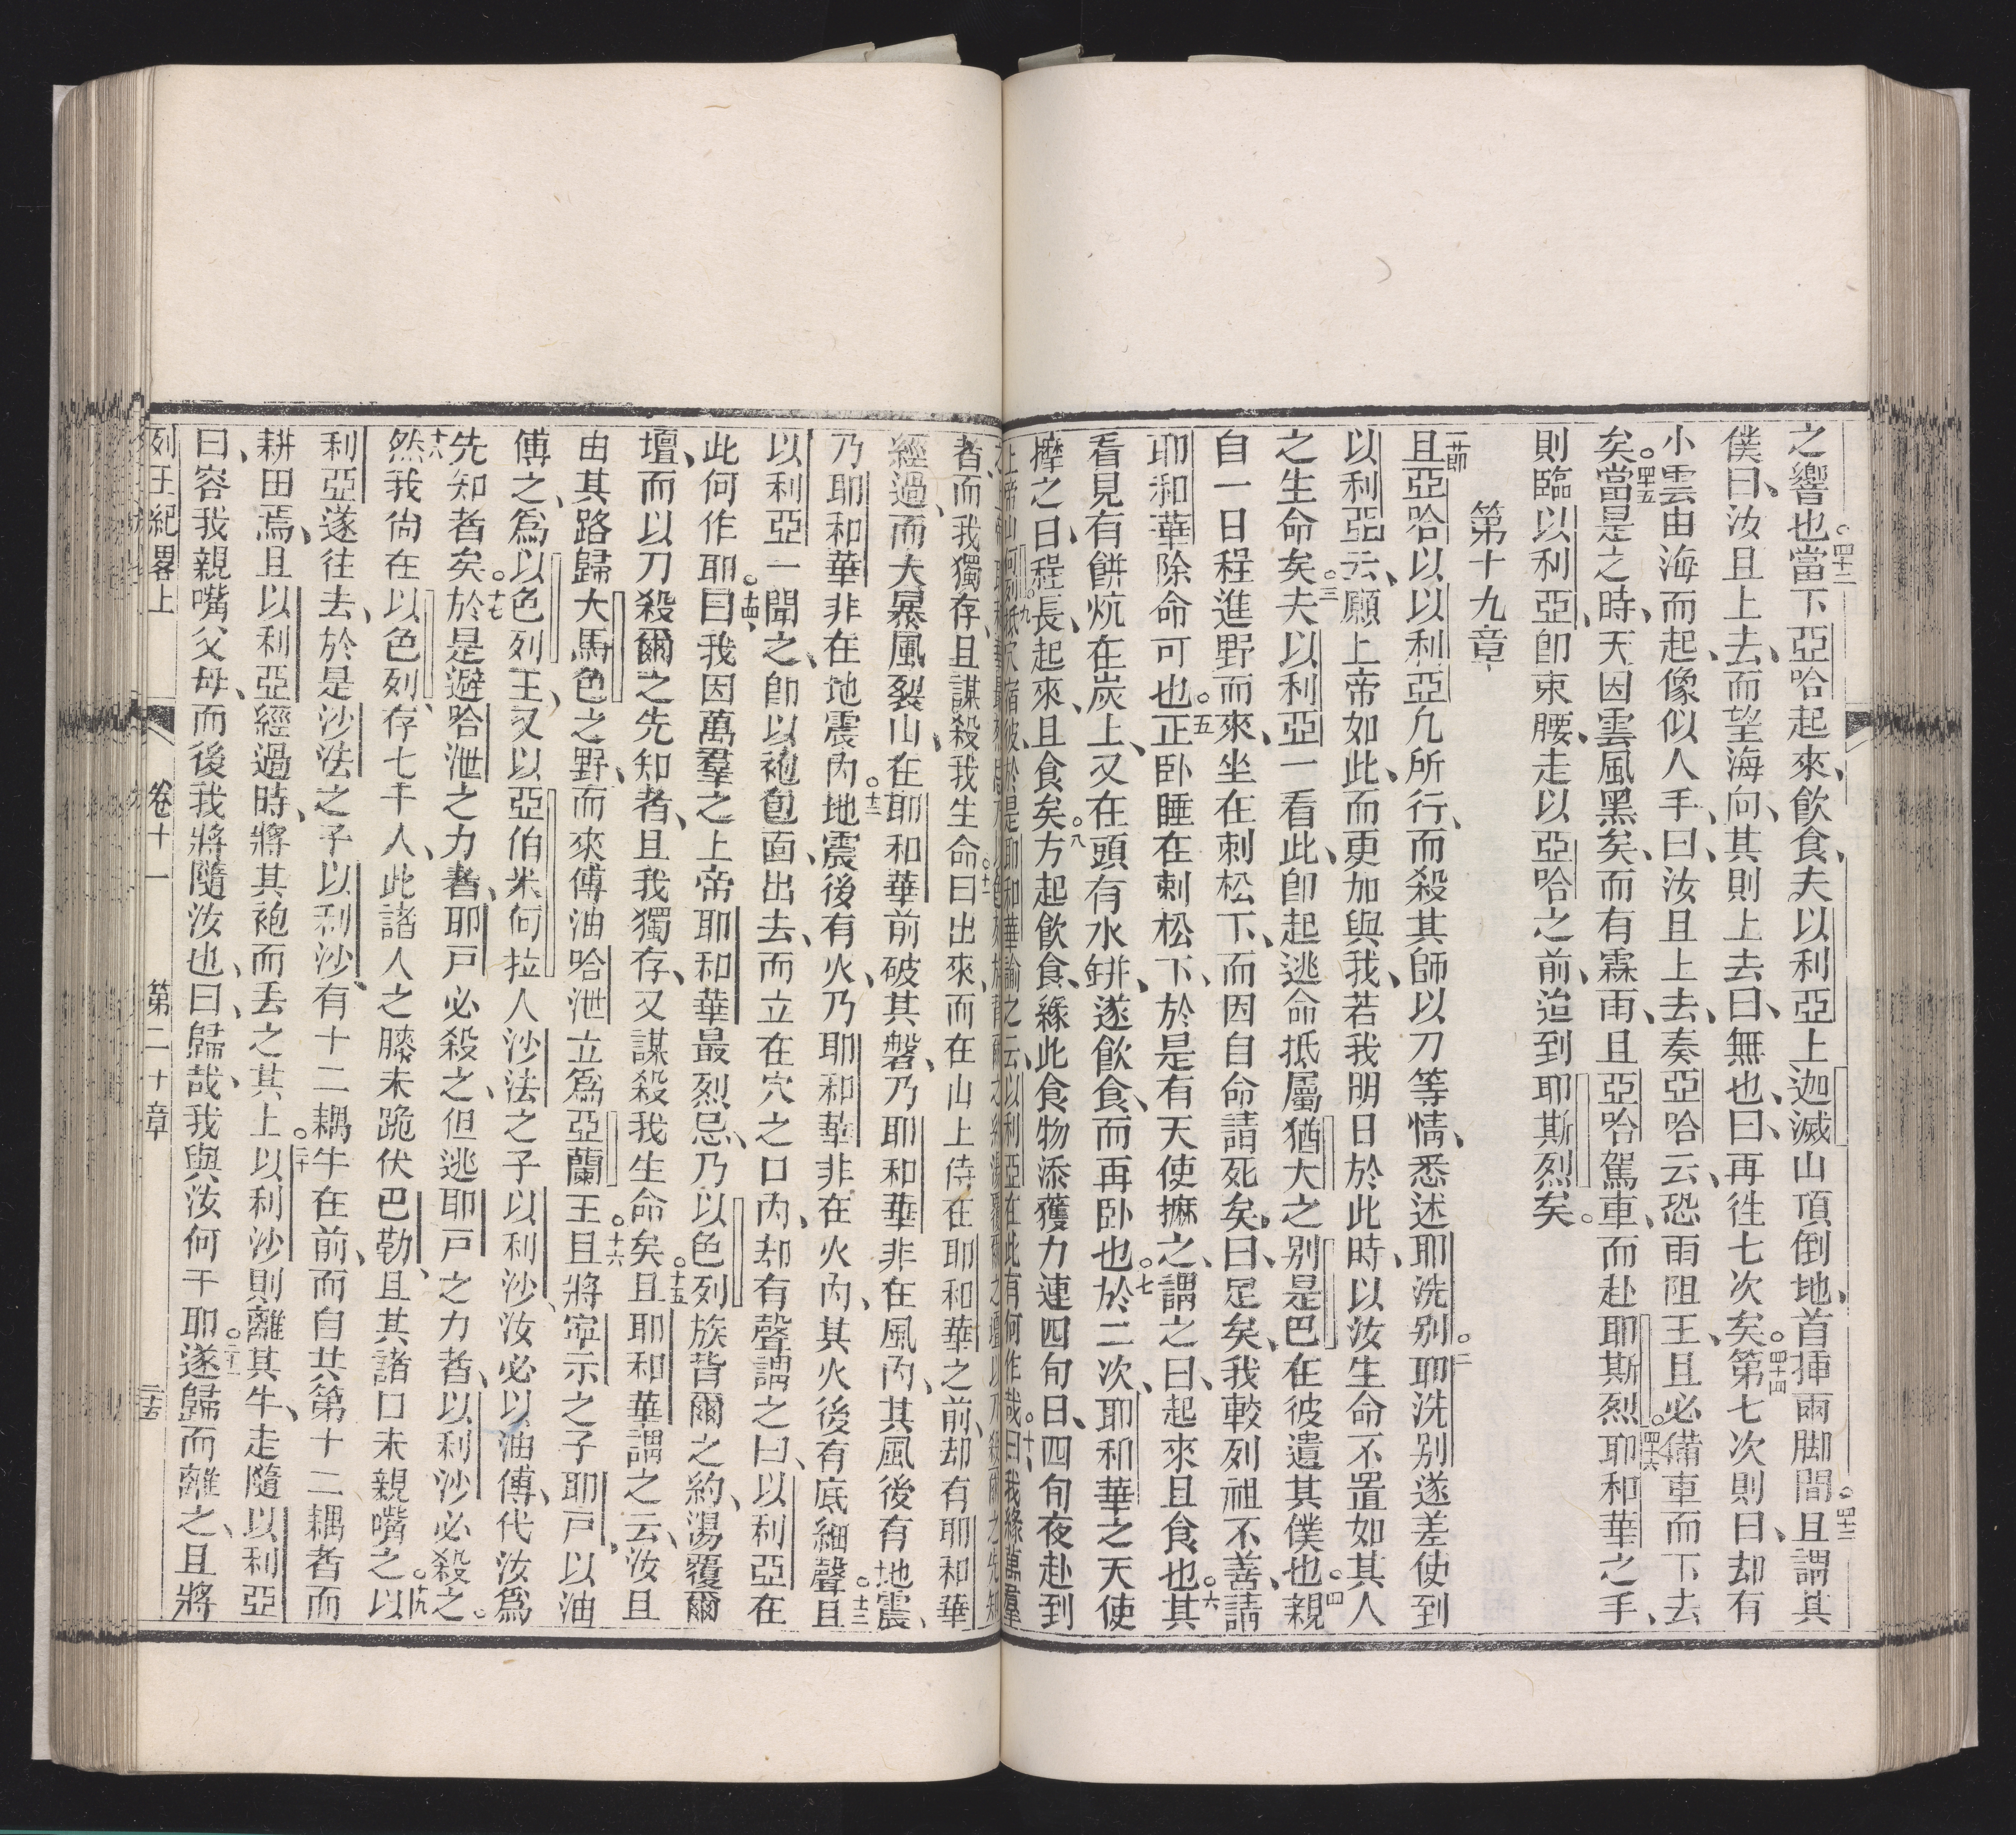 之響也。四十二當下亞哈起來、飲食、夫以利亞上迦滅山頂倒地、首揷兩脚間。四十三且謂其
僕曰、汝且上去、而望海向、其則上去曰、無也、曰、再徃七次矣。四十四第七次則曰、却有
小雲由海而起、像似人手、曰、汝且上去、奏亞哈云、恐雨阻王、且必備車而下去
矣。四十五當是之時、天因雲風黑矣、而有霖雨、且亞哈駕車、而赴耶斯烈。四十六耶和華之手、
則臨以利亞、卽束腰、走以亞哈之前、迨到耶斯烈矣。
第十九章
一節且亞哈以以利亞凢所行、而殺其師以刀等情、悉述耶洗别。二耶洗别遂差使到
以利亞云、願上帝如此、而更加與我、若我明日於此時、以汝生命不置如其人
之生命矣。三夫以利亞一看此、卽起逃命抵屬猶大之别是巴在彼遣其僕也。四親
自一日程進野而來、坐在刺松下、而因自命請死矣、曰、足矣、我較列祖不善、請
耶和華除命可也。五正卧睡在刺松下、於是有天使撫之、謂之曰、起來且食也。六其
看見有餅炕在炭上、又在頭有水缾、遂飲食、而再卧也。七於二次、耶和華之天使
摩之曰、程長、起來、且食矣。八方起飲食、緣此食物添獲力連四旬日、四旬夜赴到
上帝山何烈。九抵穴宿彼、於是耶和華諭之云、以利亞在此有何作哉。十曰、我緣萬羣
者、而我獨存、且謀殺我生命。十一曰出來、而在山上侍在耶和華之前、却有耶和華
經過、而大暴風裂山、在耶和華前破其磐、乃耶和華非在風內、其風後有地震、
乃耶和華非在地震內。十二地震後有火、乃耶和華非在火內、其火後有底細聲。十三且
以利亞一聞之、卽以袍包面、出去、而立在穴之口內、却有聲謂之曰、以利亞在
此何作耶。十四曰、我因萬羣之上帝耶和華最烈忌、乃以色列族背爾之約、湯覆爾
壇、而以刀殺爾之先知者、且我獨存、又謀殺我生命矣。十五且耶和華謂之云、汝且
由其路歸大馬色之野、而來傅油哈泄立爲亞蘭王。十六且將寧示之子耶戸、以油
傅之、爲以色列王、又以亞伯米何拉人沙法之子以利沙、汝必以油傅、代汝爲
先知者矣。十七於是避哈泄之力者、耶戸必殺之、但逃耶戸之力者、以利沙必殺之。
十八然我尙在以色列、存七千人、此諸人之膝未跪伏巴勒、且其諸口未親嘴之。十九以
利亞遂往去、於是沙法之子以利沙、有十二耦牛在前、而自共第十二耦者而
耕田焉、且以利亞經過時、將其袍而丟之其上。二十以利沙則離其牛、走隨以利亞
曰、容我親嘴父母、而後我將隨汝也、曰、歸哉、我與汝何干耶。二十一遂歸而離之、且將
列王紀畧上 卷十一 第二十章 二十五